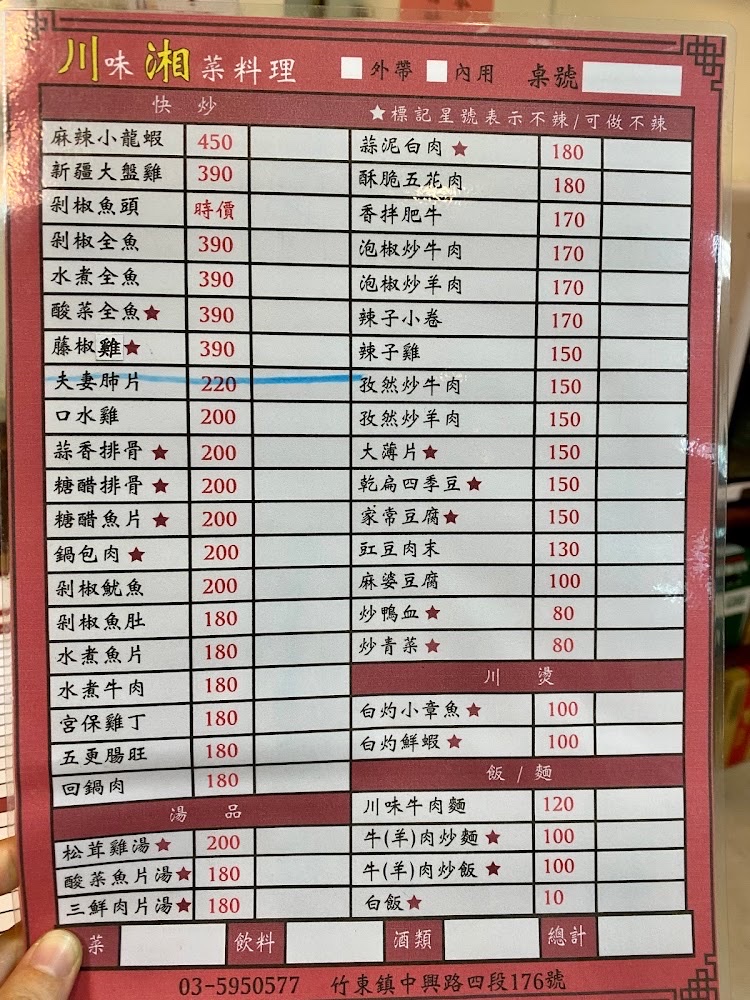 川味湘菜料理 外帶 內用 桌號
快炒
★標記星號表示不辣/可做不辣
麻辣小龍蝦 450
新疆大盤雞 390
剁椒魚頭 時價
剁椒全魚 390
水煮全魚 390
酸菜全魚★ 390
藤椒雞★ 390
夫妻肺片 220
口水雞 200
蒜香排骨★ 200
糖醋排骨★ 200
糖醋魚片★ 200
鍋包肉★ 200
剁椒魷魚 200
剁椒魚肚 180
水煮魚片 180
水煮牛肉 180
宮保雞丁 180
五更腸旺 180
回鍋肉 180
湯品
松茸雞湯★ 200
酸菜魚片湯★ 180
三鮮肉片湯★ 180
蒜泥白肉★ 180
酥脆五花肉 180
香拌肥牛 170
泡椒炒牛肉 170
泡椒炒羊肉 170
辣子小卷 170
辣子雞 150
孜然炒牛肉 150
孜然炒羊肉 150
大薄片★ 150
乾扁四季豆★ 150
家常豆腐★ 150
豇豆肉末 130
麻婆豆腐 100
炒鴨血★ 80
炒青菜★ 80
川燙
白灼小章魚★ 100
白灼鮮蝦★ 100
飯/麵
川味牛肉麵 120
牛(羊)肉炒麵★ 100
牛(羊)肉炒飯★ 100
白飯★ 10
菜 飲料 酒類 總計
03-5950577 竹東鎮中興路四段176號